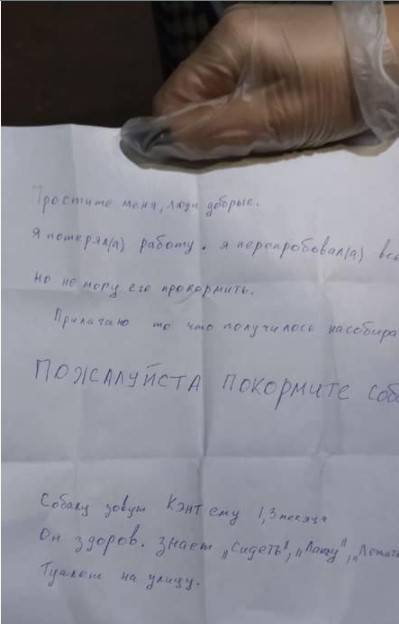 Простите меня, люди добрые.
Я потерял(а) работу. я перепробовал(а) все
но не могу его прокормить.
Прилагаю то что получилось насобира
ПОЖАЛУЙСТА ПОКОРМИТЕ СОБ
Собаку зовут Кэнт ему 1,3 месяца
Он здоров. знает „Сидеть", „Лапу", „Лежать
Туалет на улицу.